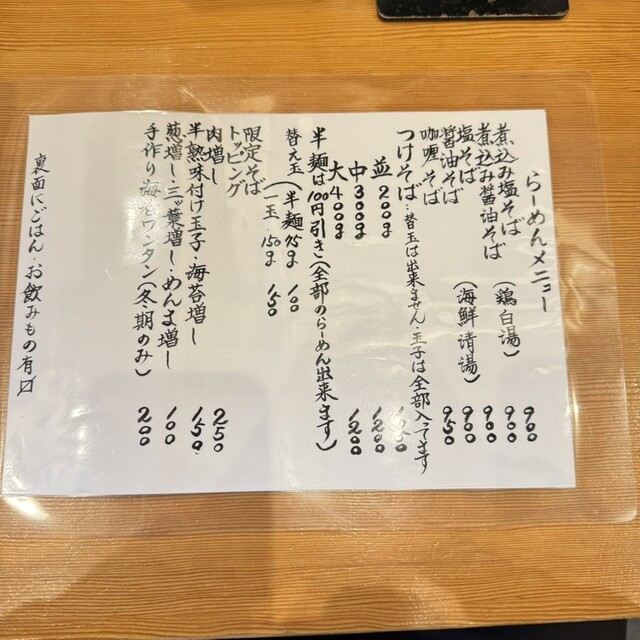 らーめんメニュー
煮込み塩そば 900
煮込み醤油そば (鶏白湯) 900
塩そば 900
醤油そば (海鮮清湯) 900
咖喱そば 950
つけそば・替玉は出来ません・玉子は全部入ってます
並 200g
中 300g
大 400g 1200
半麺は100円引き(全部のらーめん出来ます)
替え玉(半麺 75g 100
一玉・150g 150
限定そば
トッピング
肉増し 250
半熟味付け玉子・海苔増し 150
葱増し・三ッ葉増し・めんま増し 100
手作り海老ワンタン(冬期のみ) 200
裏面にごはん・お飲みもの有〼